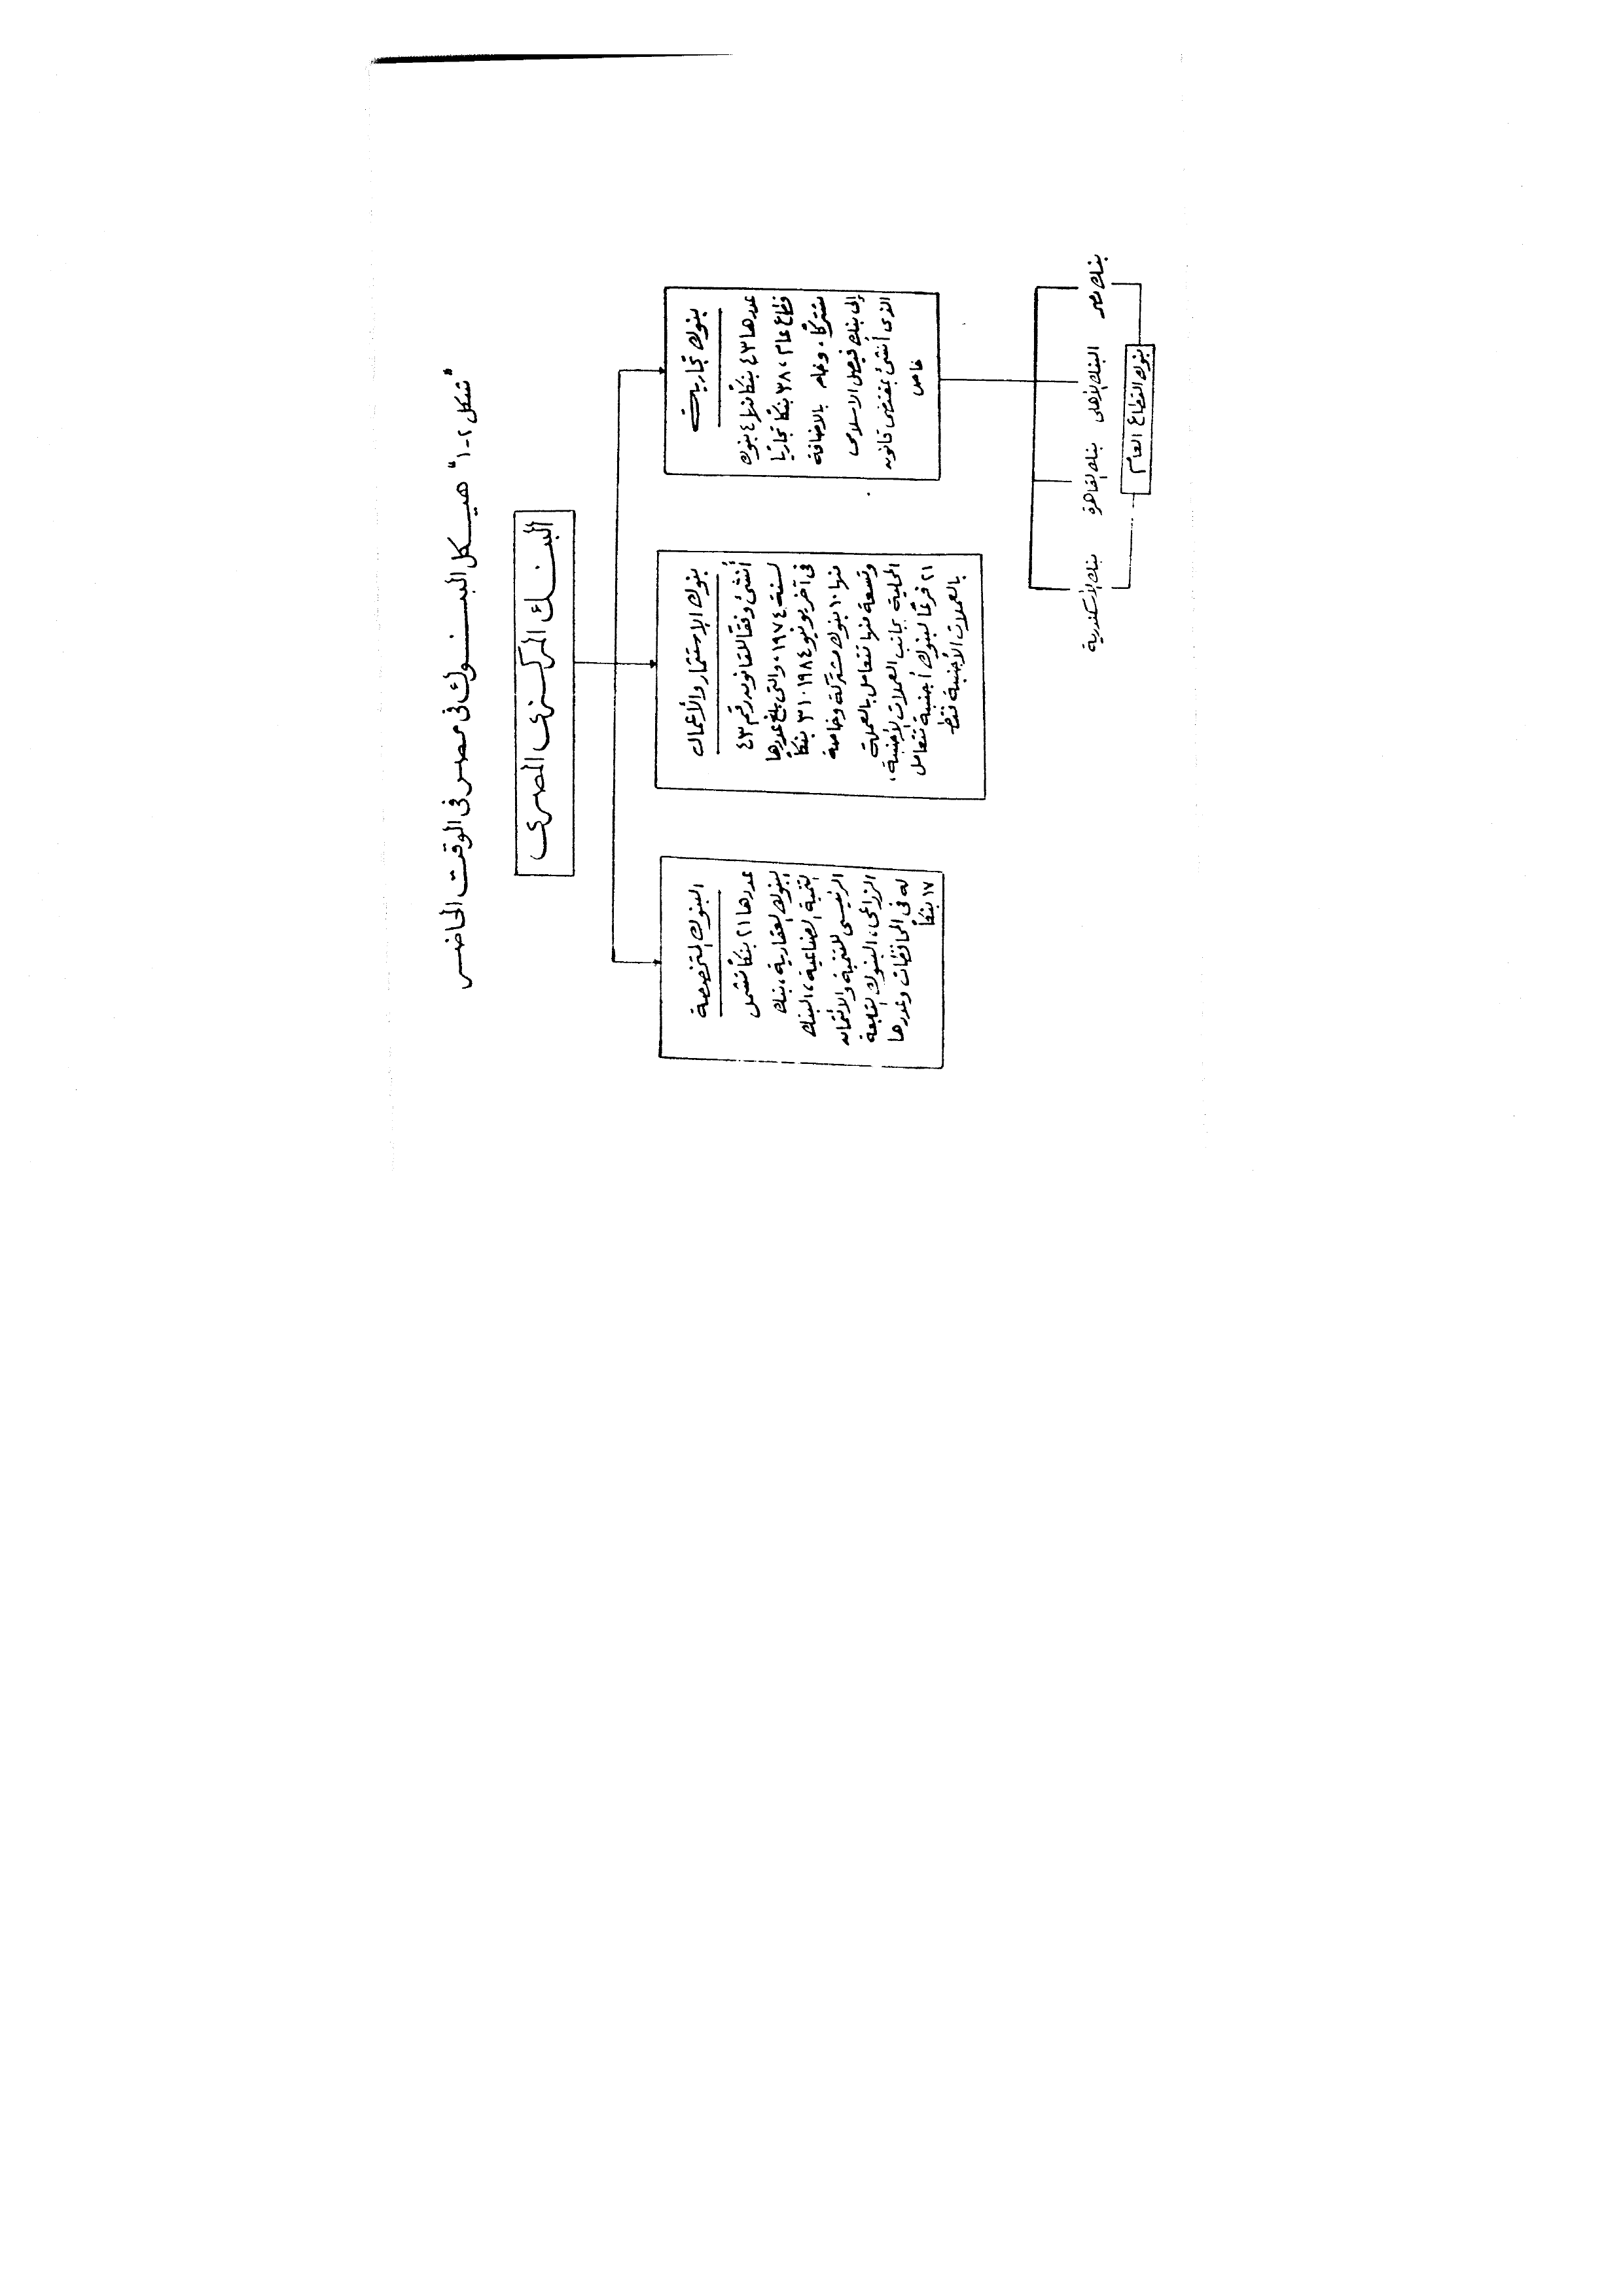 "شكل ٢-١" هيكل البنوك في مصر في الوقت الحاضر
البنك المركزى المصرى
بنوك تجارية
عددها ٤٣ بنكاً منها ٤ بنوك
قطاع عام، ٣٨ بنكاً تجارياً
مشتركاً، وخاص بالاضافة
إلى بنك فيصل الاسلامى
الذى أنشئ بمقتضى قانون
خاص
بنوك الاستثمار والأعمال
أنشئ وفقاً للقانون رقم ٤٣
لسنة ١٩٧٤، والتى بلغ عددها
فى آخر يونيو ١٩٨٤، ٣١ بنكاً
منها ١٠ بنوك مشتركة وخاصة
وتسعة منها تتعامل بالعملة
المحلية بجانب العملات الأجنبية،
٢١ فرعاً لبنوك أجنبية تتعامل
بالعملات الأجنبية فقط
البنوك المتخصصة
عددها ٢١ بنكاً تشمل
البنوك العقارية، بنك
التنمية الصناعية، البنك
الرئيسى للتنمية والائتمان
الزراعى، البنوك التابعة
له فى المحافظات وعددها
١٧ بنكاً
بنك مصر
البنك الأهلى
بنك القاهرة
بنك الاسكندرية
بنوك القطاع العام